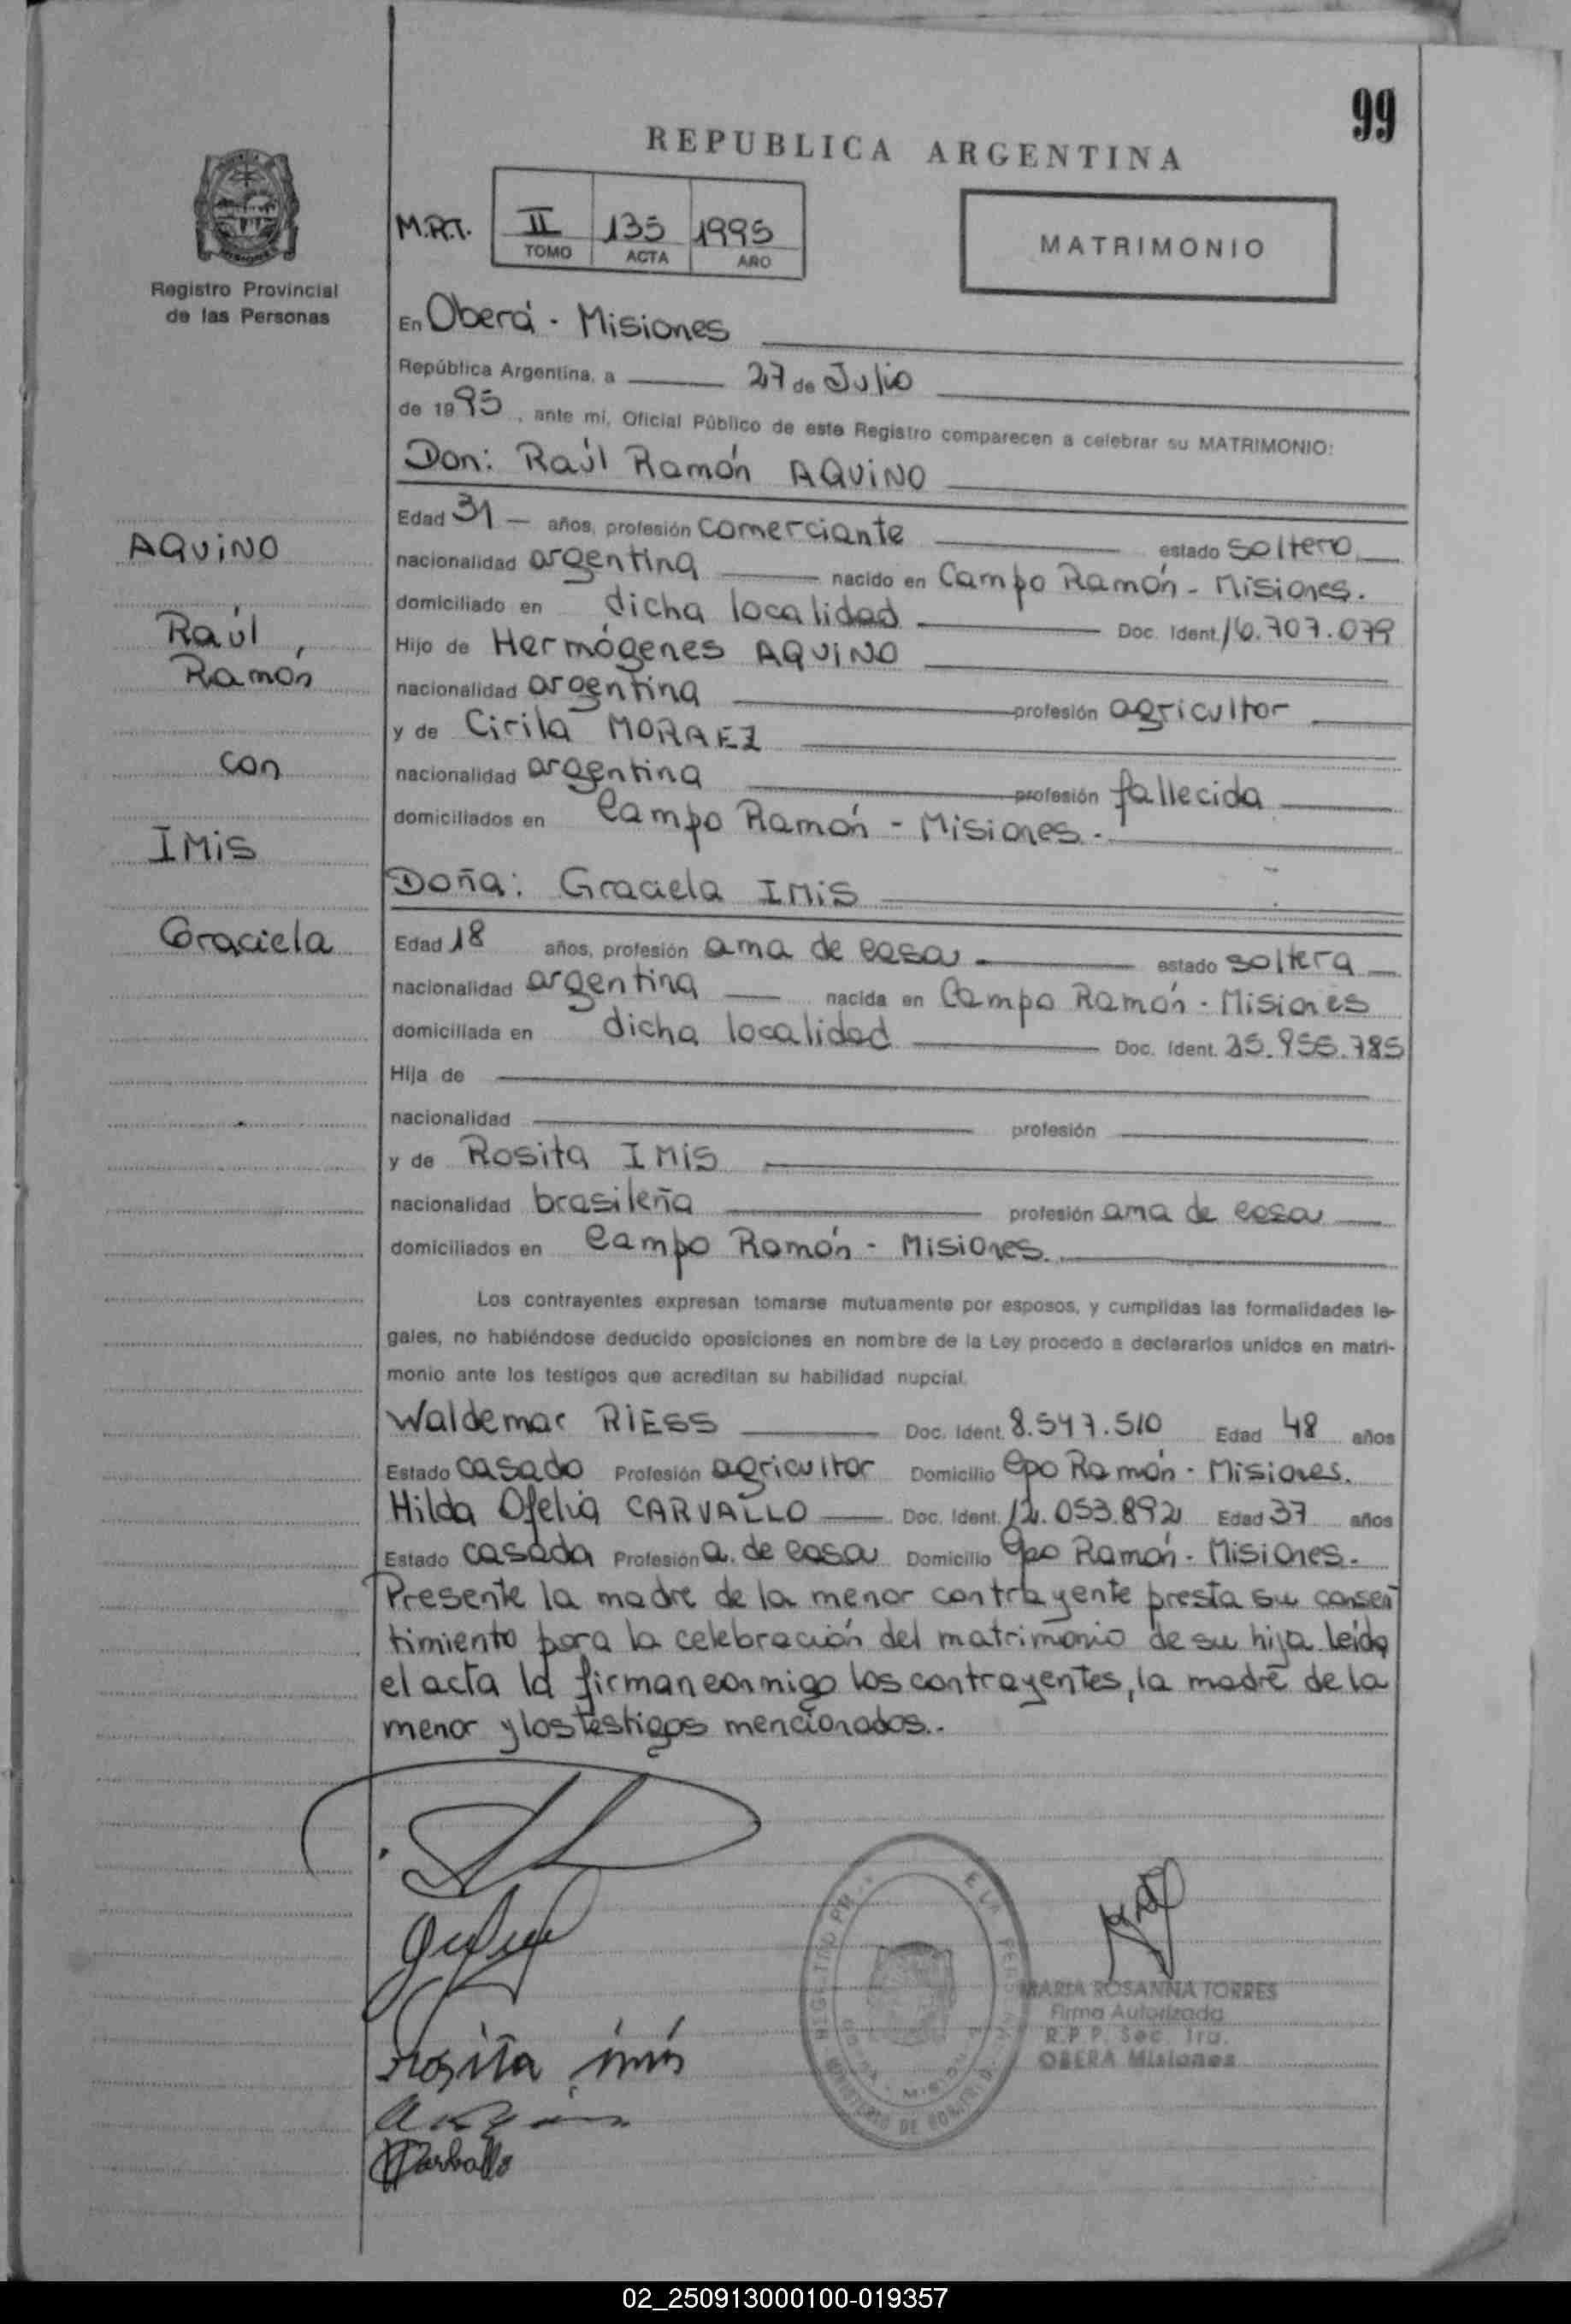 99
REPUBLICA ARGENTINA
M.R.T. II 135 1995
TOMO ACTA AÑO
MATRIMONIO
Registro Provincial
de las Personas
En Oberá - Misiones
República Argentina, a 27 de Julio
de 1995, ante mi, Oficial Público de este Registro comparecen a celebrar su MATRIMONIO:
Don: Raúl Ramón AQUINO
Edad 31 años, profesión comerciante estado soltero
nacionalidad argentina nacido en Campo Ramón - Misiones.
domiciliado en dicha localidad Doc. Ident. 16.707.079
Hijo de Hermógenes AQUINO
nacionalidad argentina profesión agricultor
y de Cirila MORAEZ
nacionalidad argentina profesión fallecida
domiciliados en Campo Ramón - Misiones.
AQUINO
Raúl
Ramón
con
IMIS
Graciela
Doña: Graciela IMIS
Edad 18 años, profesión ama de casa estado soltera
nacionalidad argentina nacida en Campo Ramón - Misiones
domiciliada en dicha localidad Doc. Ident.
Hija de
nacionalidad profesión
y de Rosita IMIS
nacionalidad brasileña profesión ama de casa
domiciliados en Campo Ramón - Misiones.
Los contrayentes expresan tomarse mutuamente por esposos, y cumplidas las formalidades le-
gales, no habiéndose deducido oposiciones en nombre de la Ley procedo a declararlos unidos en matri-
monio ante los testigos que acreditan su habilidad nupcial.
Waldemar RIESS Doc. Ident. 8.547.510 Edad 48 años
Estado casado Profesión agricultor Domicilio Cpo Ramón - Misiones.
Hilda Ofelia CARVALLO Doc. Ident. 12.053.892 Edad 37 años
Estado casada Profesión a. de casa Domicilio Cpo Ramón - Misiones.
Presente la madre de la menor contrayente presta su consen
timiento para la celebración del matrimonio de su hija. Leída
el acta la firman conmigo los contrayentes, la madre de la
menor y los testigos mencionados.
rosita imis
Carballo
MARIA ROSANNA TORRES
Firma Autorizada
R.P.P. Sec. 1ra.
OBERA Misiones
02_250913000100-019357